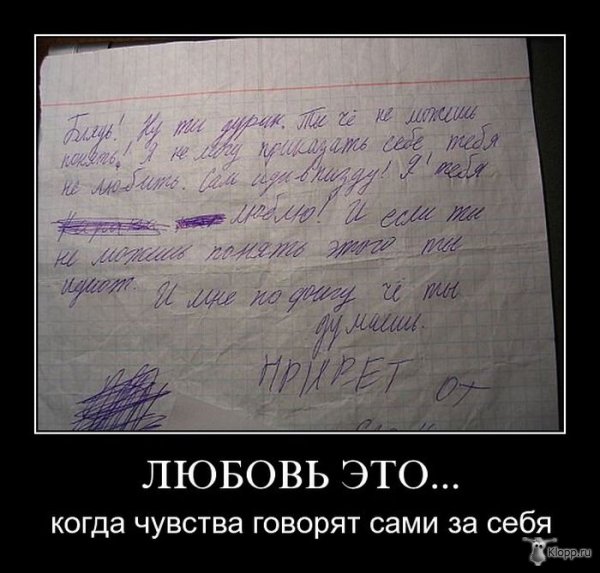 Блядь! Ну ты дурик. Ты чё не можешь
понять! Я не могу приказать себе тебя
не любить. Сам иди в пизду! Я тебя
люблю! И если ты
не можешь понять этого ты
идиот. И мне по фигу чё ты
думаешь.
от
ЛЮБОВЬ ЭТО...
когда чувства говорят сами за себя
Klopp.ru